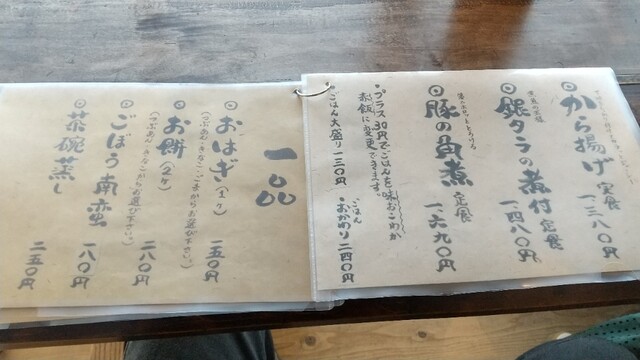 から揚げ定食
一二八〇円
銀タラの煮付定食
一四八〇円
豚の角煮定食
一六九〇円
・プラス30円でごはんを味おこわか
赤飯に変更できます。
ごはん大盛り 一三〇円
・ごはんおかわり 二四〇円
一品
おはぎ(1ヶ)
一五〇円
お餅(2ヶ)
(つぶあん・きなこからお選び下さい。)
二八〇円
ごぼう南蛮
一八〇円
茶碗蒸し
二五〇円